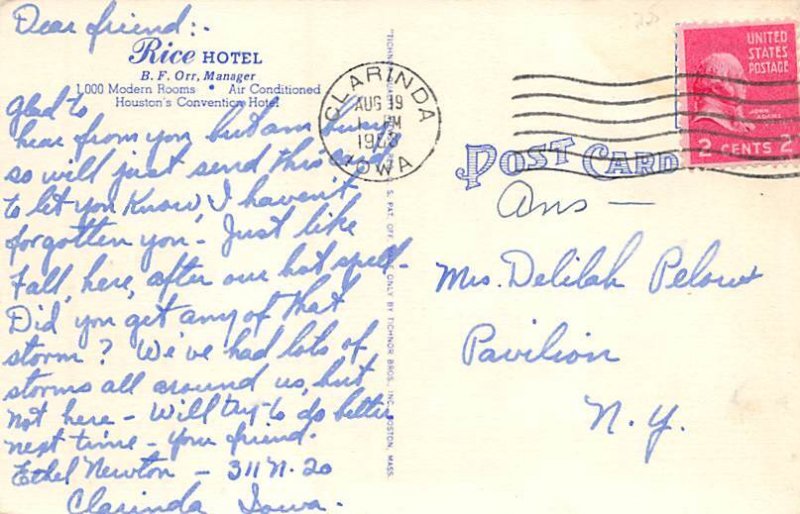 Dear friend:-
Rice HOTEL
B. F. Orr, Manager
1,000 Modern Rooms • Air Conditioned
Houston's Convention Hotel
Glad to
hear from you but am busy
so will just send this card
to let you know, I haven't
forgotten you - Just like
Fall, here, after our hot spell.
Did you get any of that
storm? We've had lots of
storms all around us, but
not here - Will try to do better
next time - Your friend.
Ethel Newton - 311 N. 20
Clarinda Iowa.
CLARINDA
AUG 19
1 PM
IOWA
POST CARD
UNITED
STATES
POSTAGE
JOHN
ADAMS
2 CENTS 2
Ans -
Mrs. Delilah
Pavilion
N.Y.